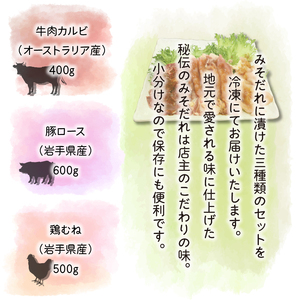 牛肉カルビ
（オーストラリア産）
400g
豚ロース
（岩手県産）
600g
鶏むね
（岩手県産）
500g
みそだれに漬けた三種類のセットを
冷凍にてお届けいたします。
地元で愛される味に仕上げた
秘伝のみそだれは店主のこだわりの味。
小分けなので保存にも便利です。